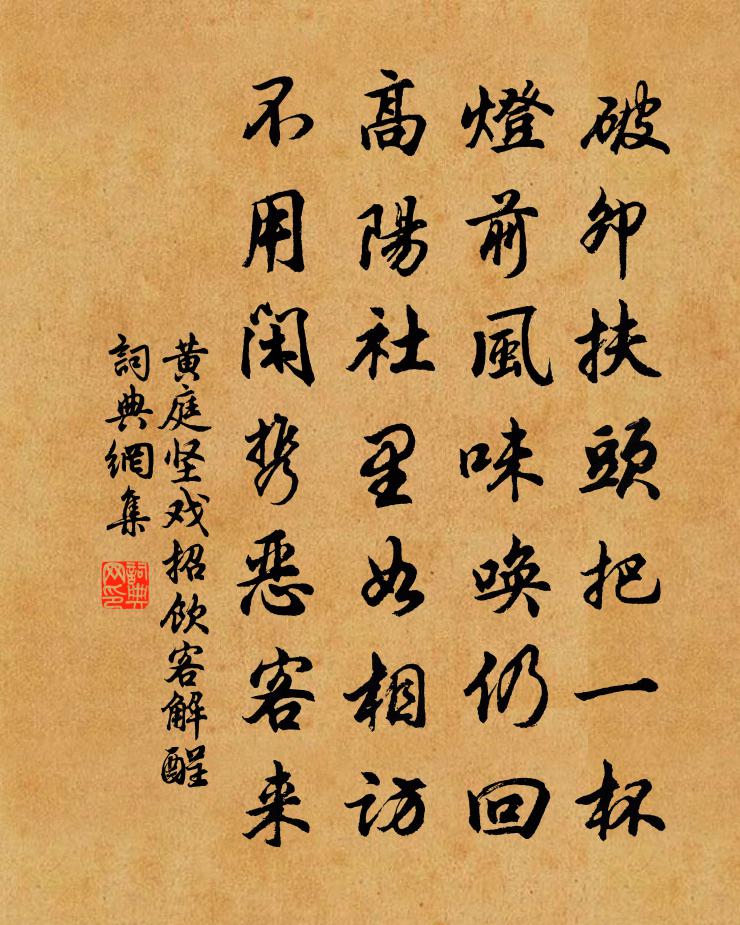 破卯扶頭把一杯
燈前風味喚仍回
高陽社里如相訪
不用閑携恶客来
黄庭坚戏招飲客解酲
詞典網集
詞典網印